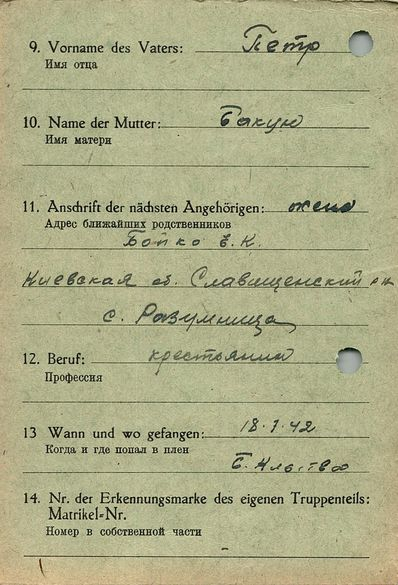 9. Vorname des Vaters: Петр
Имя отца
10. Name der Mutter: Бакун
Имя матери
11. Anschrift der nächsten Angehörigen: жена
Адрес ближайших родственников
Бойко Е.К.
Киевская об. Славищенский р-н
с. Разумница
12. Beruf: крестьянин
Профессия
13 Wann und wo gefangen: 18.7.42
Когда и где попал в плен
14. Nr. der Erkennungsmarke des eigenen Truppenteils:
Matrikel=Nr.
Номер в собственной части